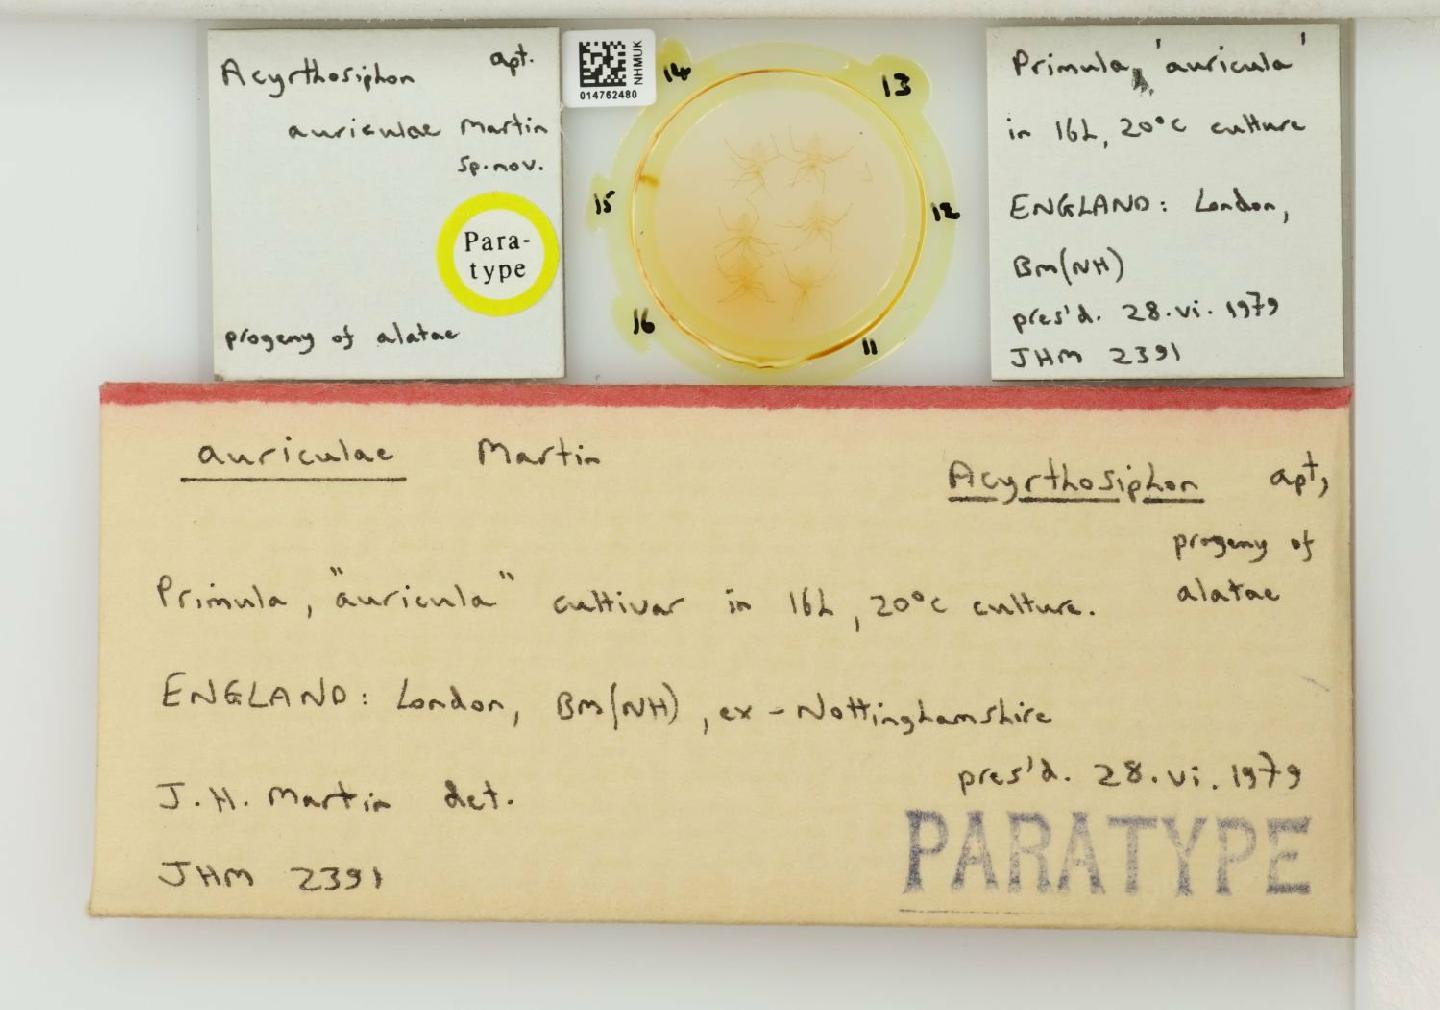 Acyrthosiphon apt.
auriculae Martin
sp. nov.
Para-
type
progeny of alatae
NHMUK
014762480
14
13
15
12
16
11
Primula, 'auricula'
in 16L, 20°C culture
ENGLAND: London,
BM(NH)
pres'd. 28.vi.1979
JHM 2391
auriculae Martin
Acyrthosiphon apt,
progeny of
alatae
Primula, "auricula" cultivar in 16L, 20°C culture.
ENGLAND: London, BM(NH), ex-Nottinghamshire
pres'd. 28.vi.1979
J.H. Martin det.
JHM 2391
PARATYPE